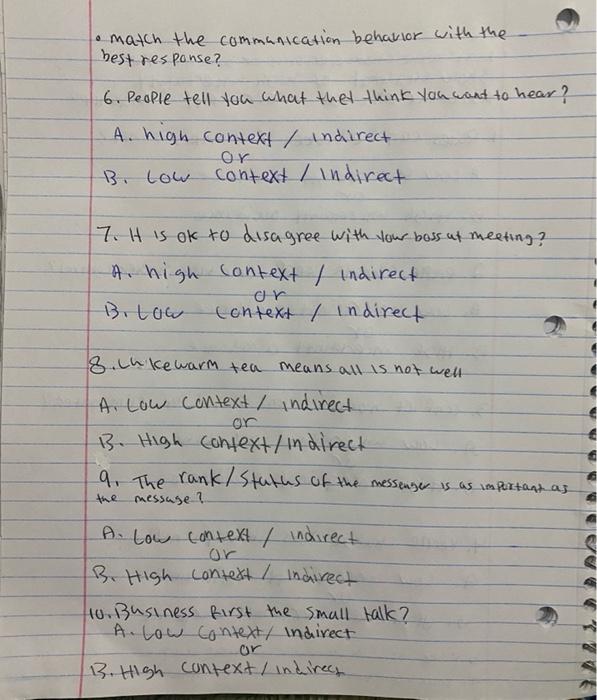 • match the communication behavior with the
best response?
6. People tell you what thet think you want to hear?
A. high context / indirect
or
B. Low context / indirect
7. It is ok to disagree with your boss at meeting?
A. high context / indirect
or
B. Low context / indirect
8. Lukewarm tea means all is not well
A. Low context / indirect
or
B. High context / indirect
9. The rank / Status of the messenger is as important as
the message?
A. Low context / indirect
or
B. High context / indirect
10. Business first the small talk?
A. Low context / indirect
or
B. High context / indirect